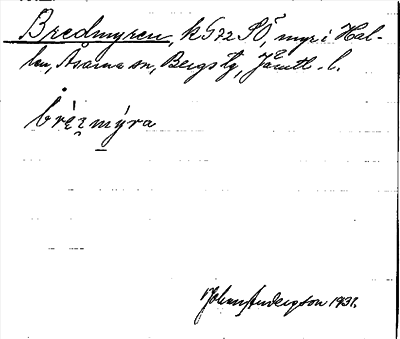 Bredmyren, k 572 SÖ, myr i Hal-
len, Åsarna sn, Bergs tg, Jämtl. l.
Johan Andersson 1931.